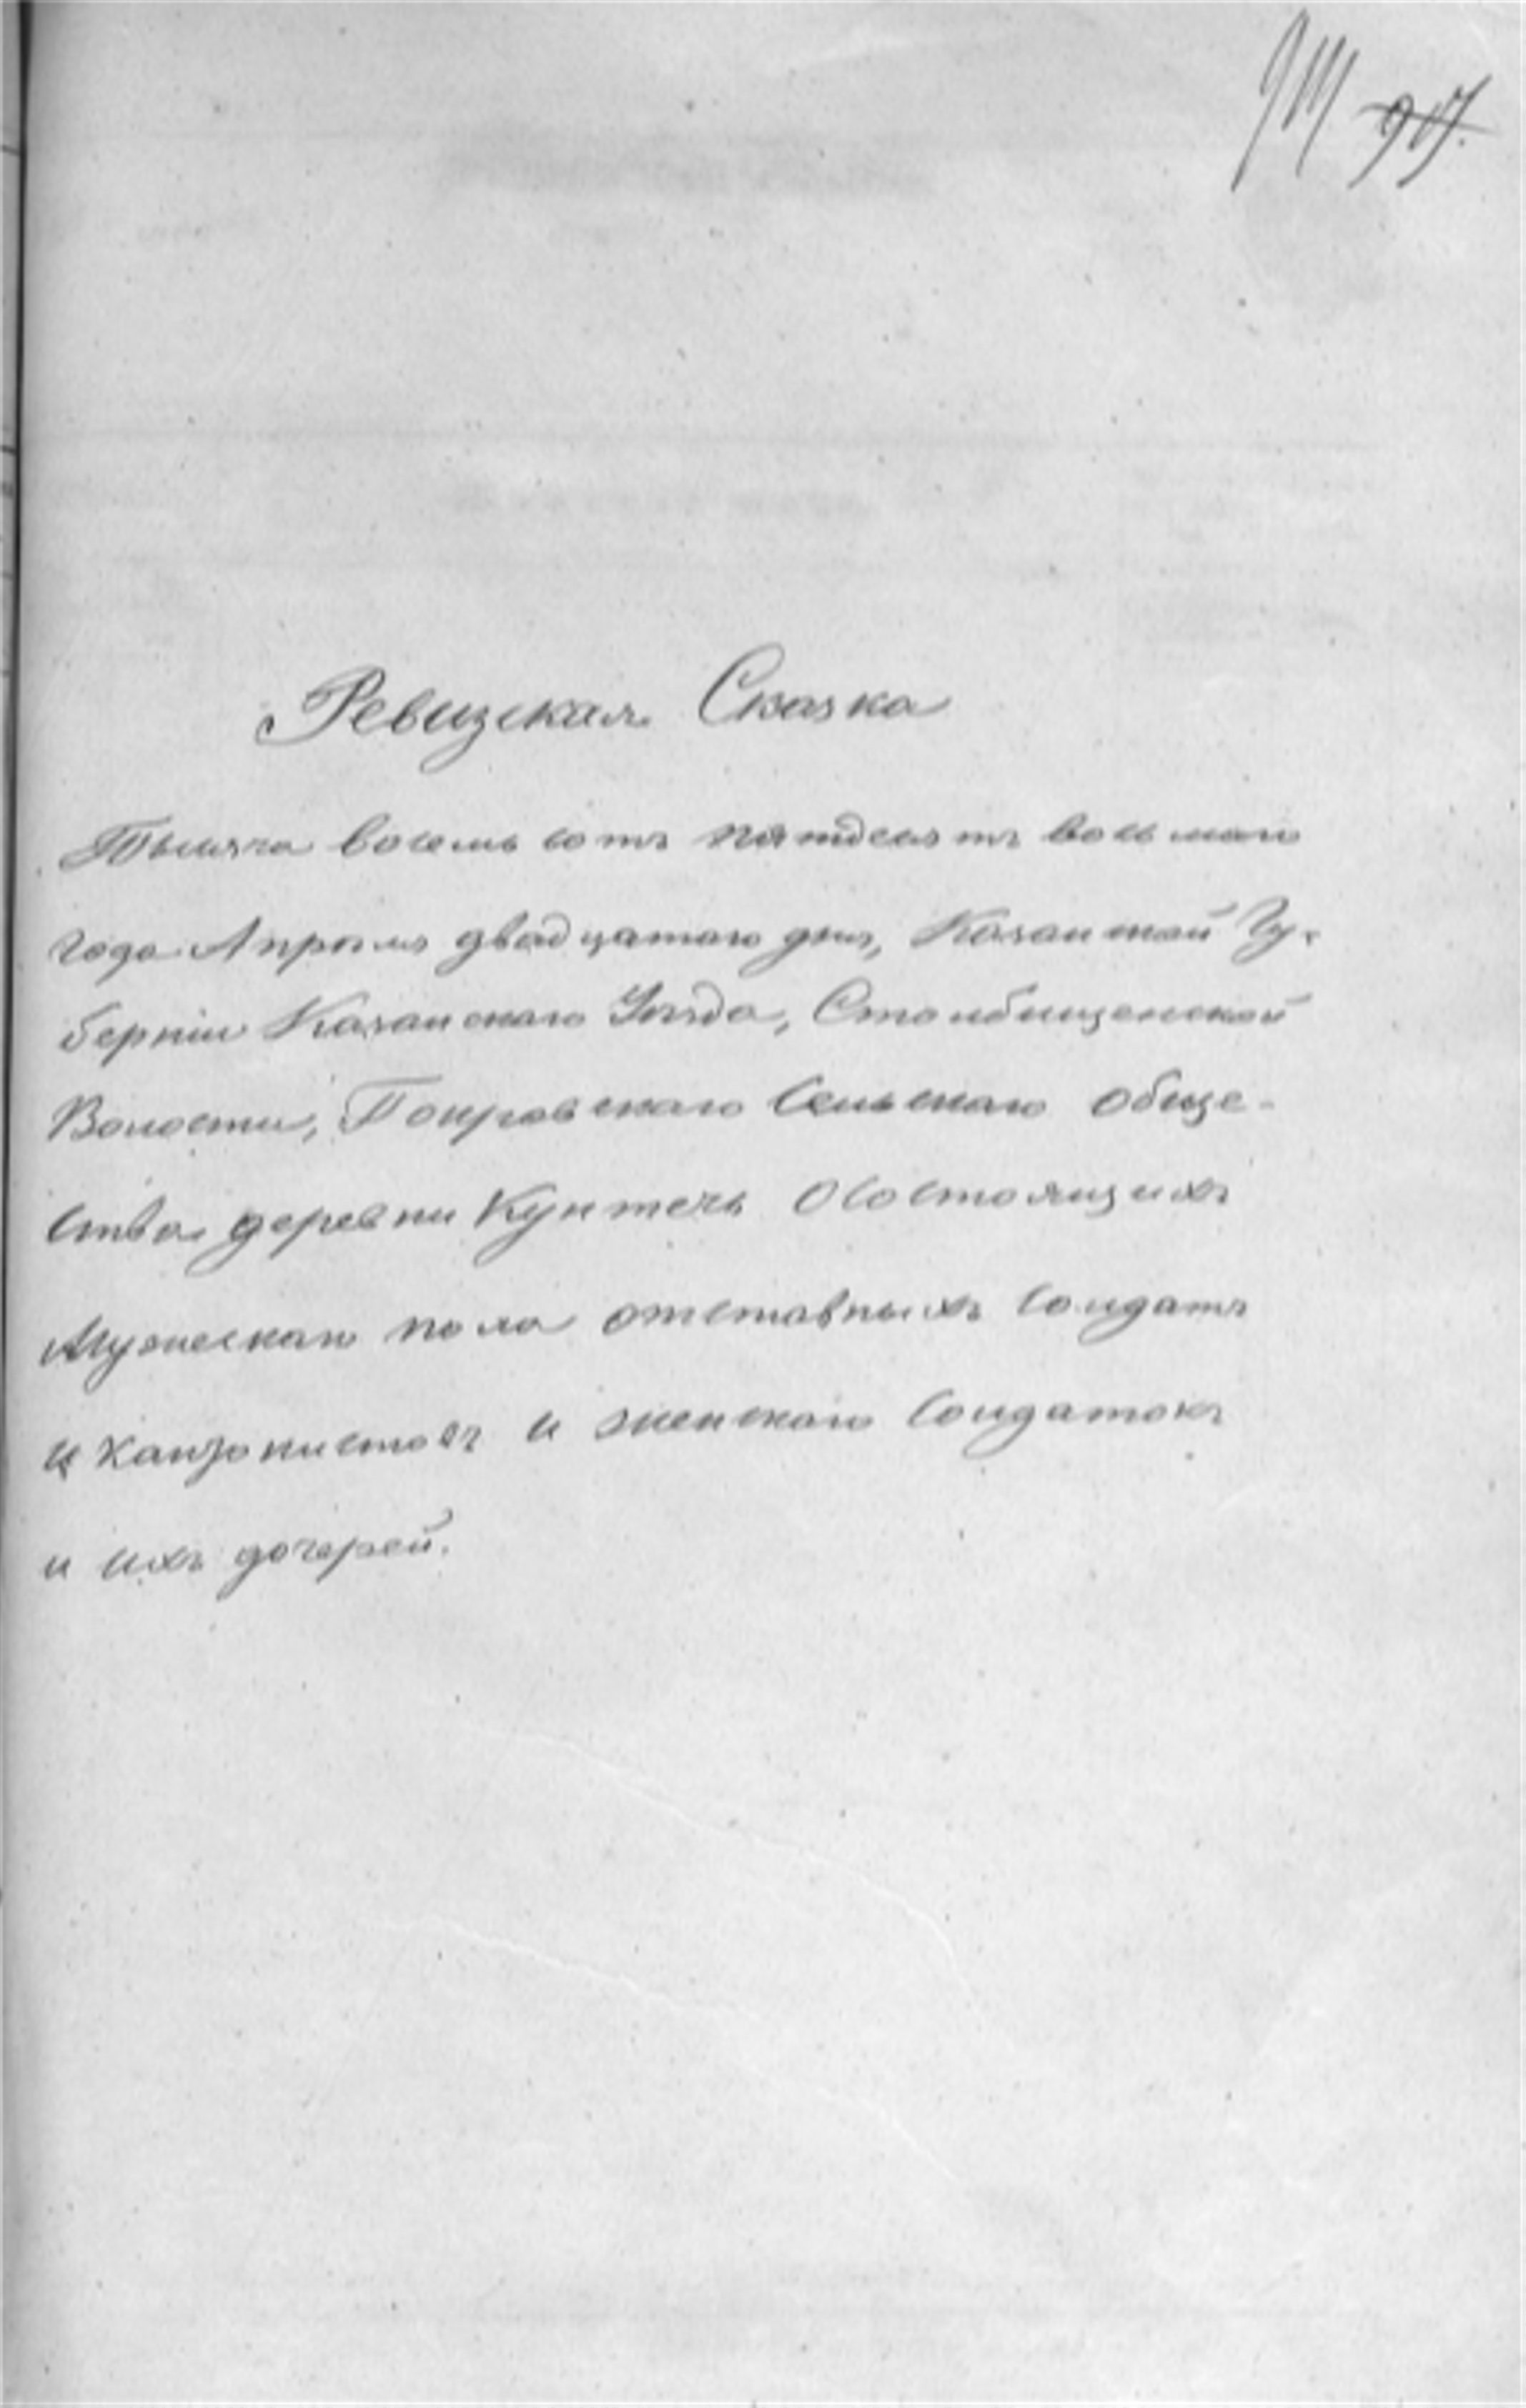 Ревизская Сказка
Тысяча восемь сотъ пятдесятъ восьмаго
года Апрѣля двадцатаго дня, Казанской Гу-
берніи Казанскаго Уѣзда, Столбищенской
Волости, Покровскаго Сельскаго обще-
ства деревни Кунтечь О состоящихъ
Мужескаго пола отставныхъ солдатъ
и Кантонистовъ и женскаго солдатокъ
и ихъ дочерей.